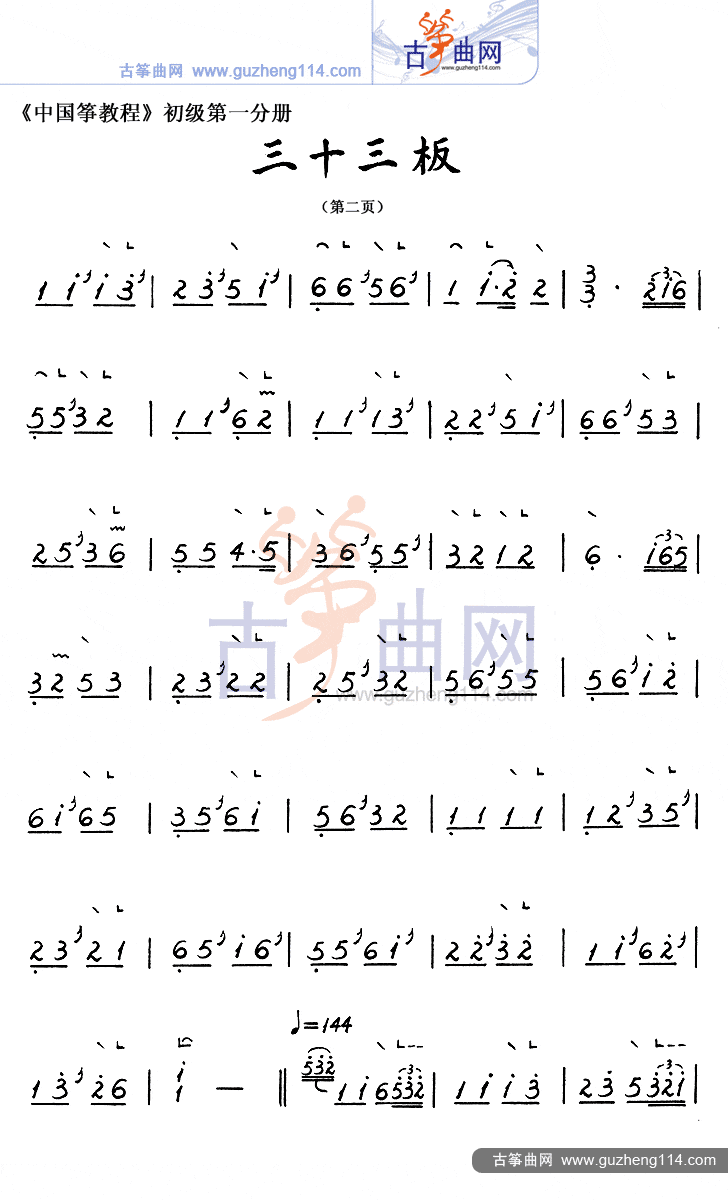 古筝曲网 www.guzheng114.com
古筝曲网
www.guzheng114.com
《中国筝教程》初级第一分册
三十三板
（第二页）
1 i i 3 | 2 3 5 i | 6 6 5 6 | 1 i·2 2 | 3 3 · 2i6 |
5 5 3 2 | 1 1 6 2 | 1 1 1 3 | 2 2 5 i | 6 6 5 3 |
2 5 3 6 | 5 5 4·5 | 3 6 5 5 | 3 2 1 2 | 6 · i65 |
3 2 5 3 | 2 3 2 2 | 2 5 3 2 | 5 6 5 5 | 5 6 i 2 |
古筝曲网
www.guzheng114.com
6 i 6 5 | 3 5 6 i | 5 6 3 2 | 1 1 1 1 | 1 2 3 5 |
2 3 2 1 | 6 5 i 6 | 5 5 6 i | 2 2 3 2 | 1 i 6 2 |
♩=144
1 3 2 6 | i 1 — ‖ 532 1 i 6 532 | 1 i i 3 | 2 3 5 32i |
古筝曲网 www.guzheng114.com